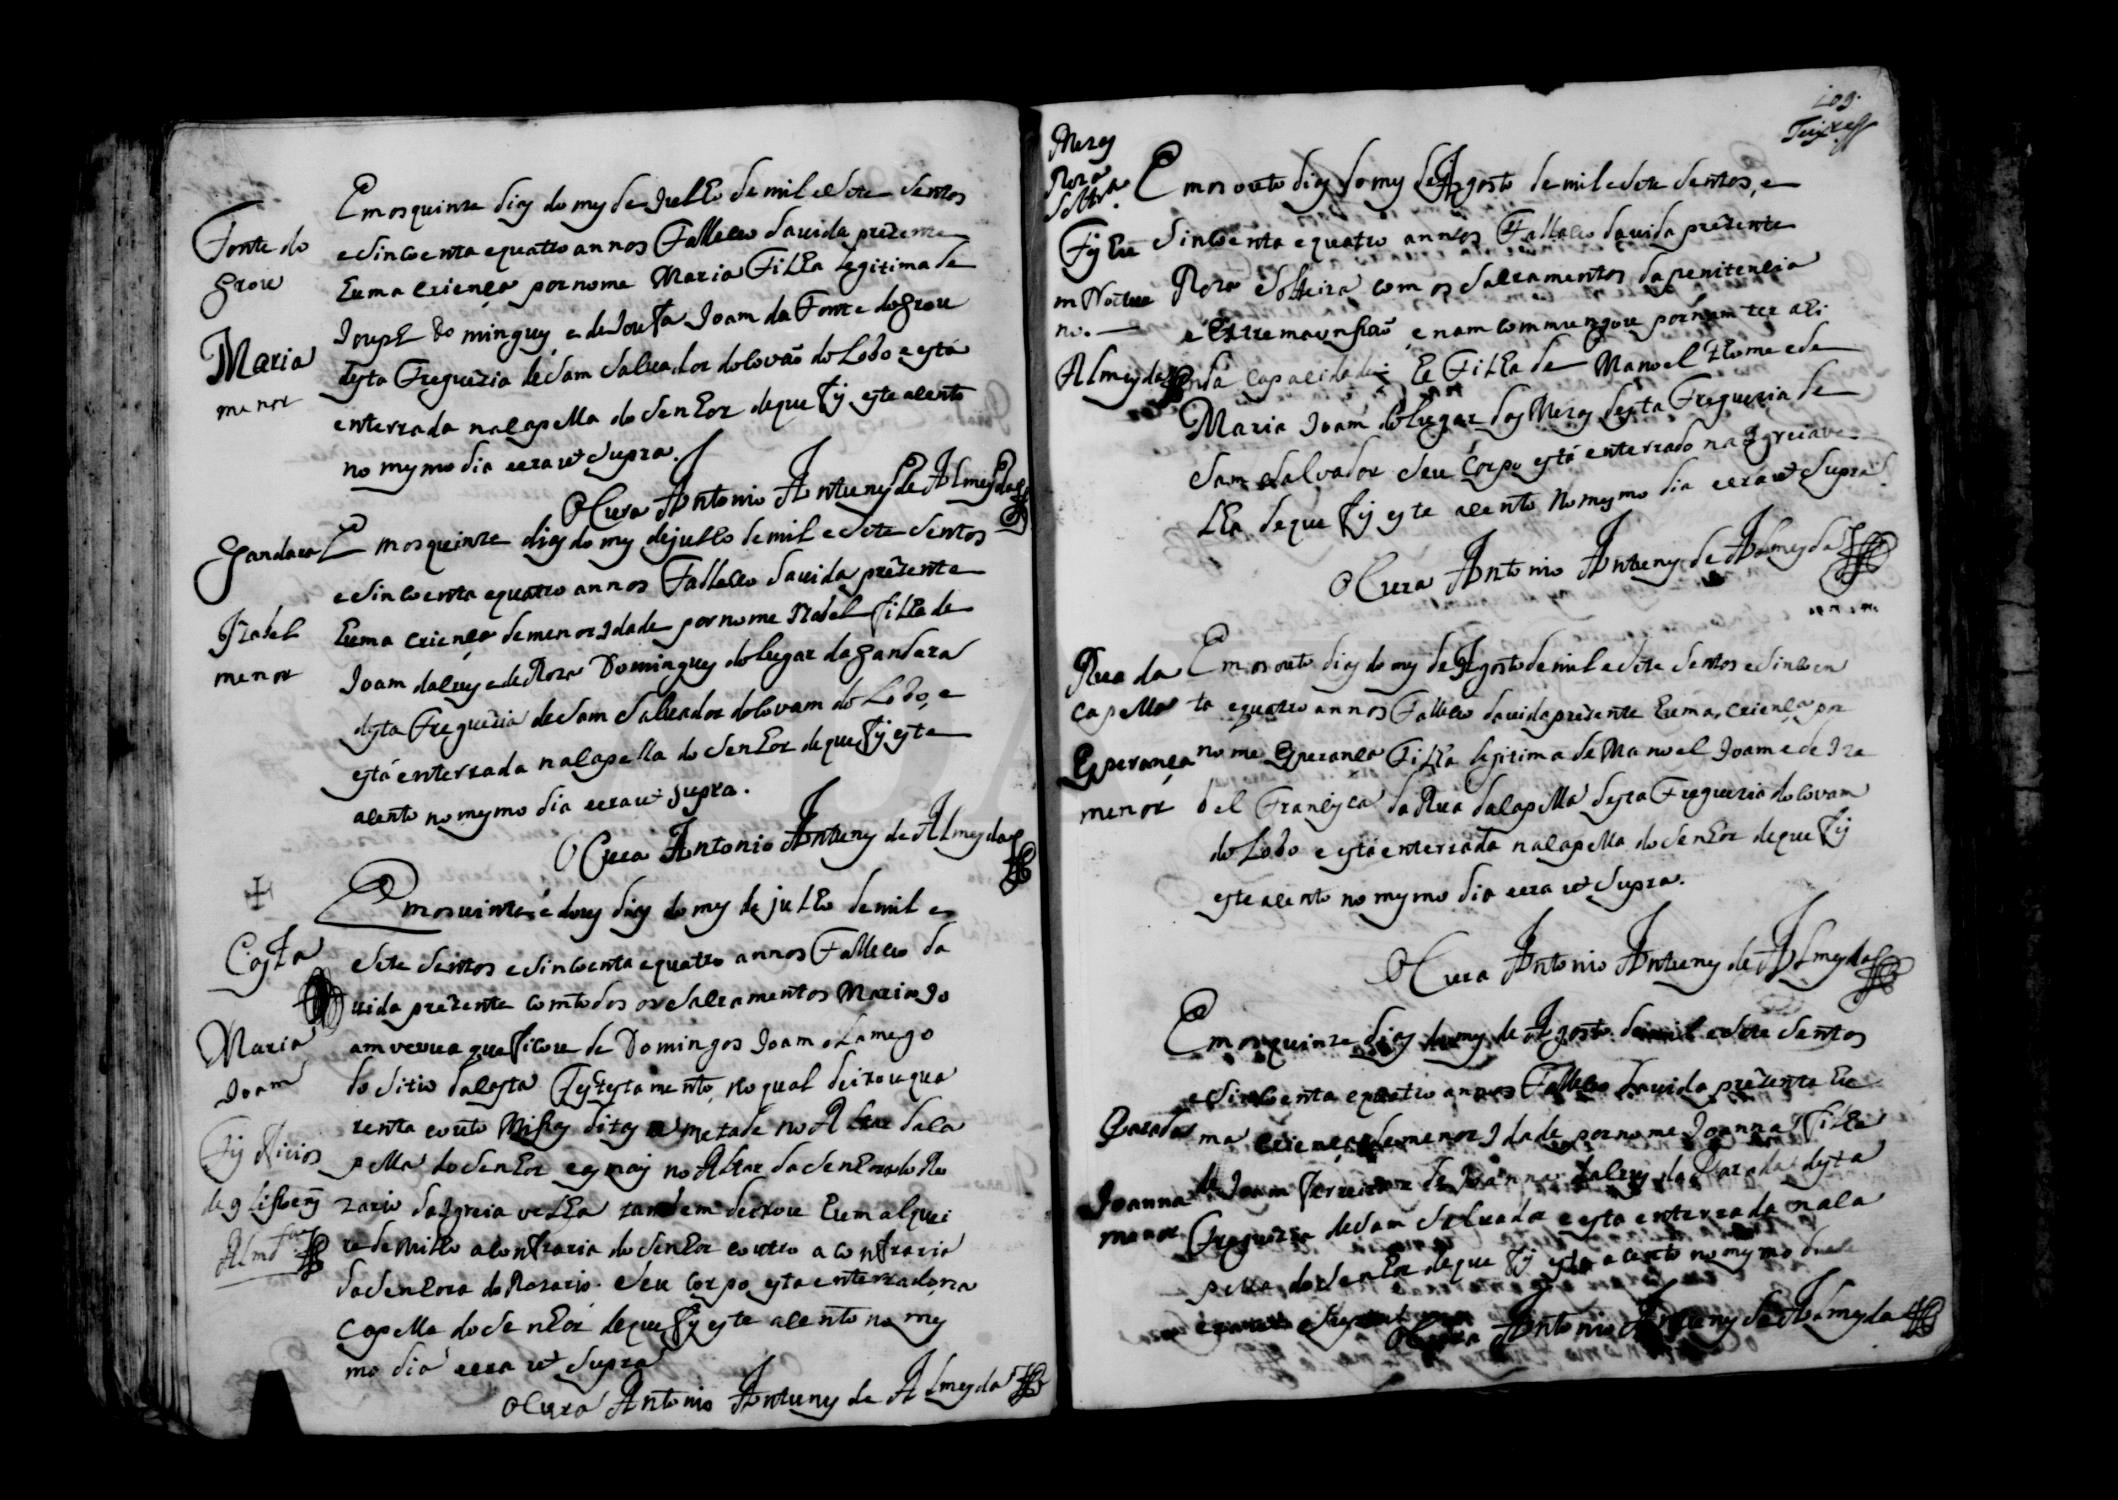 Fonte do
Grou
Maria
menor
Em os quinze dias do mes de Julho de mil e sete sentos
e sincoenta e quatro annos Falleceo da uida prezente
huma criença por nome Maria Filha legitima de
Iouzeph Domingues e de Ioufa Ioam da Fonte do Grou
desta Freguezia de Sam Saluador do Covão do Lobo e está
enterrada na Capella do Senhor de que fis este acento
no mesmo dia e era ut supra.
O Cura Antonio Antunes de Almeyda
Gandara
Izabel
menor
Em os quinze dias do mes de julho de mil e sete sentos
e sincoenta e quatro annos Falleceo da uida prezente
huma criença de menor Idade por nome Izabel filha de
Ioam da Cruz e de Roza Domingues do lugar da Gandara
desta Freguezia de Sam Saluador do Covam do Lobo, e
está enterrada na Capella do Senhor de que fis este
acento no mesmo dia e era ut supra.
O Cura Antonio Antunes de Almeyda
Costa
Maria
Ioam
Fis Oficios
de 9 lisoens
Almda
Em os uinta e dous dias do mes de julho de mil e
sete sentos e sincoenta e quatro annos Falleceo da
uida prezente com todos os Sacramentos Maria Jo
am veuua que ficou de Domingos Ioam o Lamego
do sitio da Costa Fes testamento, no qual deixou qua
renta e outo Missas ditas a metade no Altar da Ca
pella do Senhor e as mais no Altar da Senhora do Ro
zario da Igreia velha tambem deixou hum alquei
re de Milho a Confraria do Senhor e outro a Confraria
da Senhora do Rosario. seu Corpo esta enterrado na
Capella do Senhor de que fis este acento no mes
mo dia e era ut supra
O Cura Antonio Antunes de Almeyda
109
Mezas
Roza
Soltra.
Fis hu
m Noctur
no.
Almeyda
Em os outo dias do mes de Agosto de mil e sete sentos, e
sincoenta e quatro annos Falleceo da uida prezente
Roza Solteira com os Sacramentos da penitencia
e Extrema unsão e nam Commungou por nam ter ali
Capacidade: he Filha de Manoel Thome e de
Maria Ioam do lugar das Mezas desta Freguezia de
Sam Salvador seu Corpo está enterrado na Igreia ve
lha de que fis este acento no mesmo dia e era ut supra.
O Cura Antonio Antunes de Almeyda
Rua da
Capella
Esperança
menor
Em os outo dias do mes de Agosto de mil e sete sentos e sincoen
ta e quatro annos Falleceo da uida prezente huma, criença por
nome Esperança Filha legitima de Manoel Ioam e de Iza
bel Francisca da Rua da Capella desta Freguezia do Covam
do Lobo e está enterrada na Capella do Senhor de que fis
este acento no mesmo dia e era ut supra.
O Cura Antonio Antunes de Almeyda
Parada
Ioanna
menor
Em os quinze dias do mes de Agosto de mil e sete sentos
e sincoenta e quatro annos Falleceo da uida prezente hu
ma criença de menor Idade por nome Ioanna filha
de Ioam Ferreira e de Ioanna da Cruz da Parada desta
Freguezia de Sam Saluador e esta enterrada na Ca
pella do Senhor de que fis este acento no mesmo dia
e era ut supra
O Cura Antonio Antunes de Almeyda